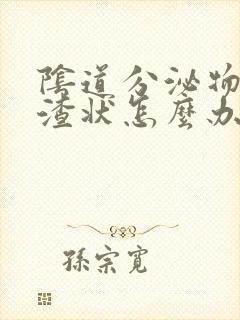 陰道分泌物
渣狀怎麼办
孫宗寬